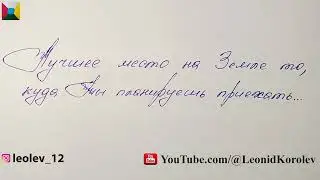 Лучшее место на Земле то,
куда Ты планируешь приехать...
leolev_12
YouTube.com/@LeonidKorolev